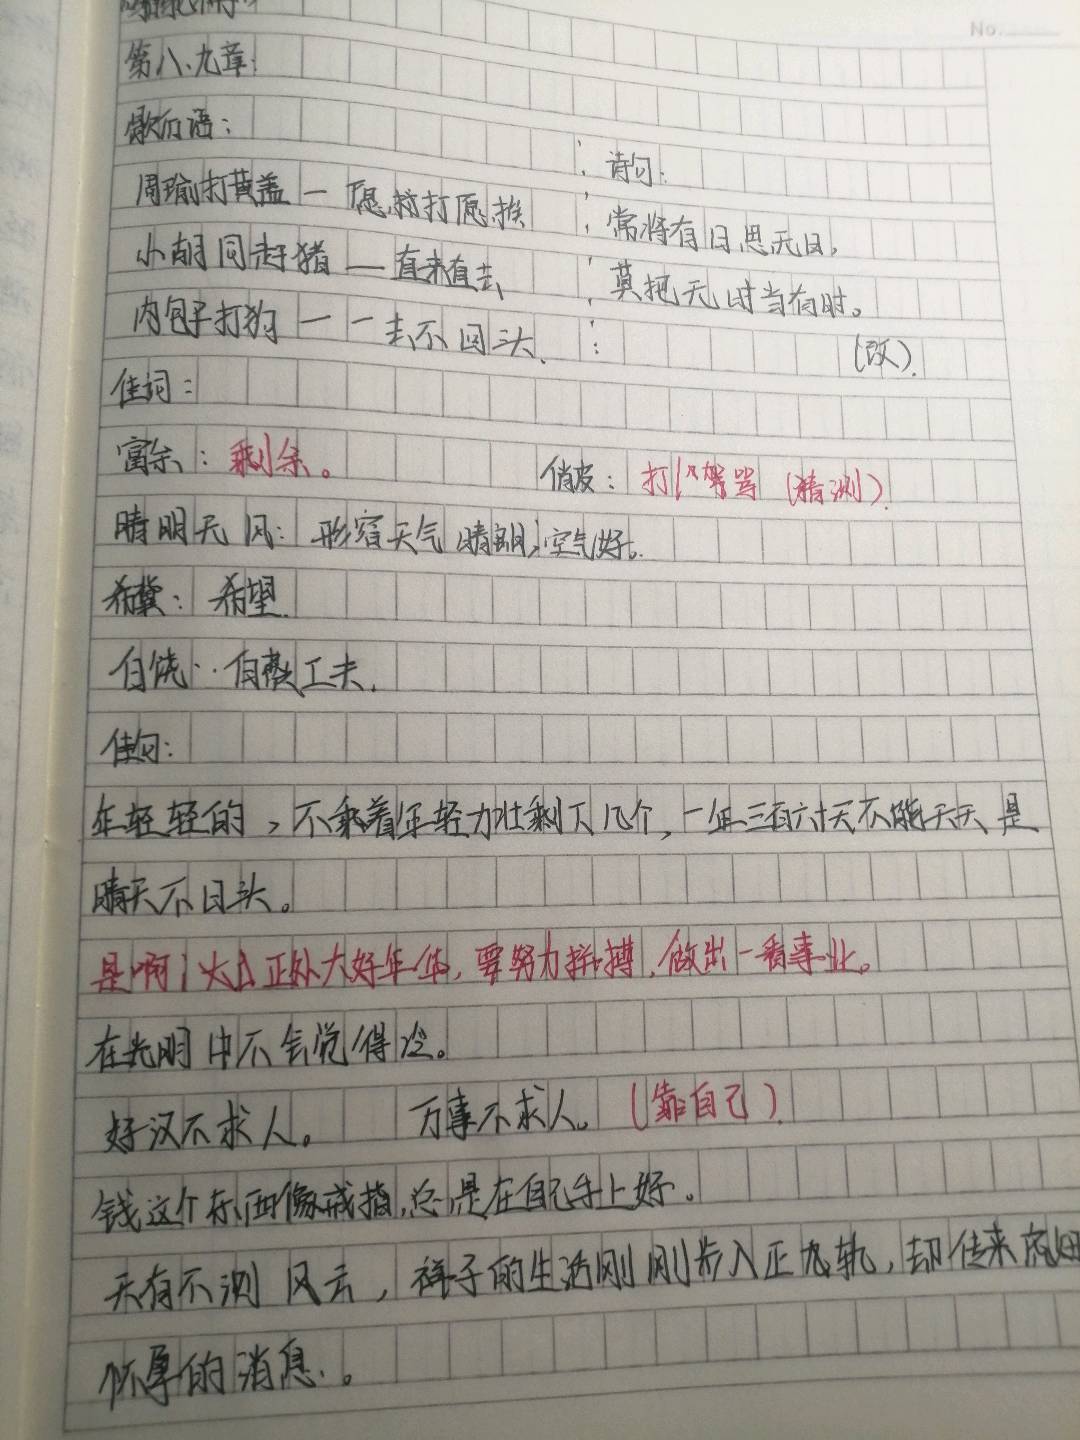 第八、九章:
歇后语:
周瑜打黄盖一愿打愿挨
小胡同赶猪——直来直去
肉包子打狗一一去不回头.
诗句:
常将有日思无日,
莫把无时当有时。
(改).
佳词:
富余: 剩余。
俏皮: 打骂 (猜测).
晴明无风: 形容天气晴朗,空气好.
希冀: 希望.
白饶: 白费工夫.
佳句:
年轻轻的,不乘着年轻力壮剩下几个,一年三百六十天不能天天是
晴天不回头。
是啊!火正处大好年华,要努力拼搏,做出一番事业。
在光明中不会觉得冷。
好汉不求人。 万事不求人。(靠自己)
钱这个东西像戒指,总是在自己手上好。
天有不测风云,祥子的生活刚刚步入正轨,却传来虎妞
怀孕的消息.。